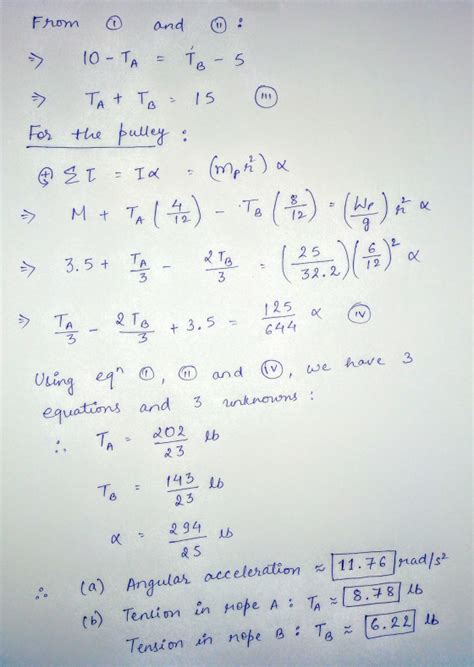 From (I) and (II) :
⇒ 10 - T_A = T_B - 5
⇒ T_A + T_B = 15 (III)
For the pulley :
⊕ Στ = Iα = (m_p r²) α
⇒ M + T_A (4/12) - T_B (8/12) = (W_p/g) r² α
⇒ 3.5 + T_A/3 - 2T_B/3 = (25/32.2)(6/12)² α
⇒ T_A/3 - 2T_B/3 + 3.5 = 125/644 α (IV)
Using eqⁿ (I), (II) and (IV), we have 3
equations and 3 unknowns :
∴ T_A = 202/23 lb
T_B = 143/23 lb
α = 294/25 lb
∴ (a) Angular acceleration ≈ 11.76 rad/s²
(b) Tention in rope A : T_A ≈ 8.78 lb
Tension in rope B : T_B ≈ 6.22 lb